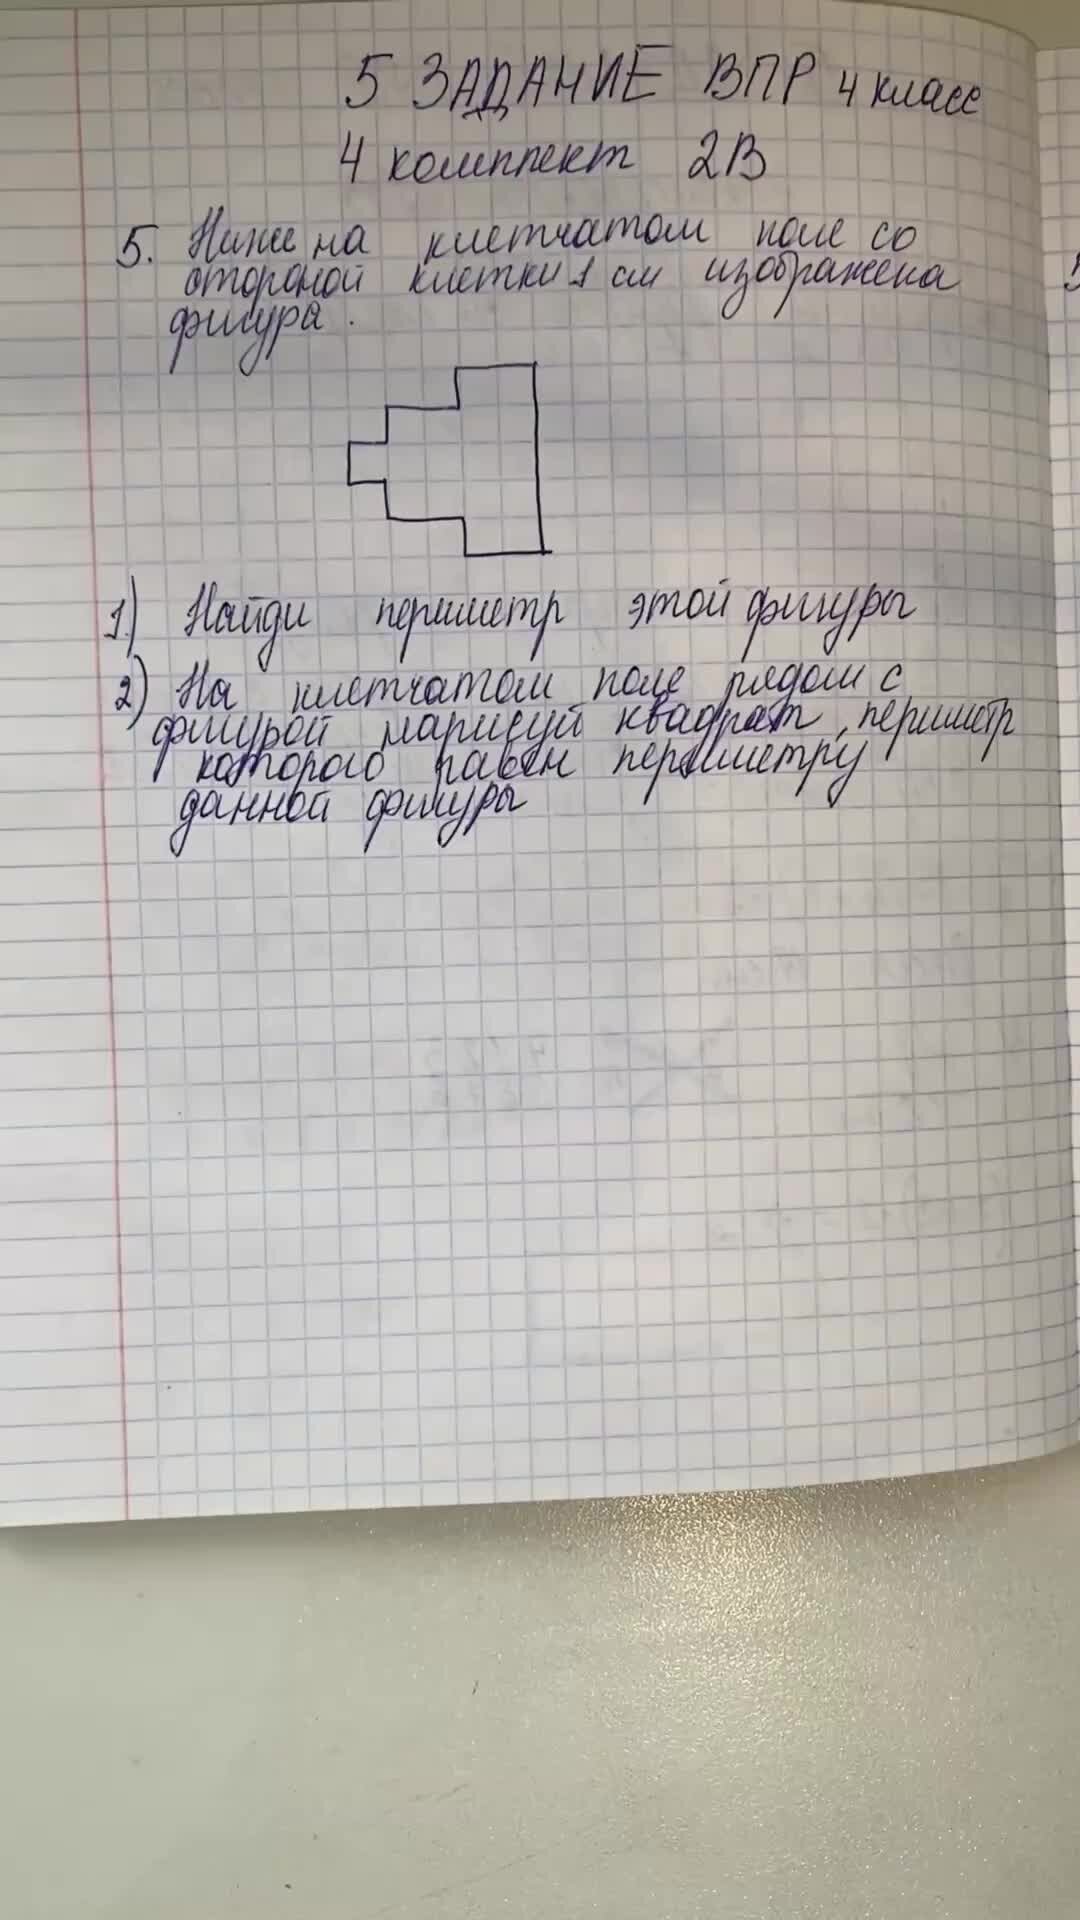 5 ЗАДАНИЕ ВПР 4 класс
4 комплект 2В
5. Ниже на клетчатом поле со
стороной клетки 1 см изображена
фигура.
1) Найди периметр этой фигуры
2) На клетчатом поле рядом с
фигурой нарисуй квадрат, периметр
которого равен периметру
данной фигуры